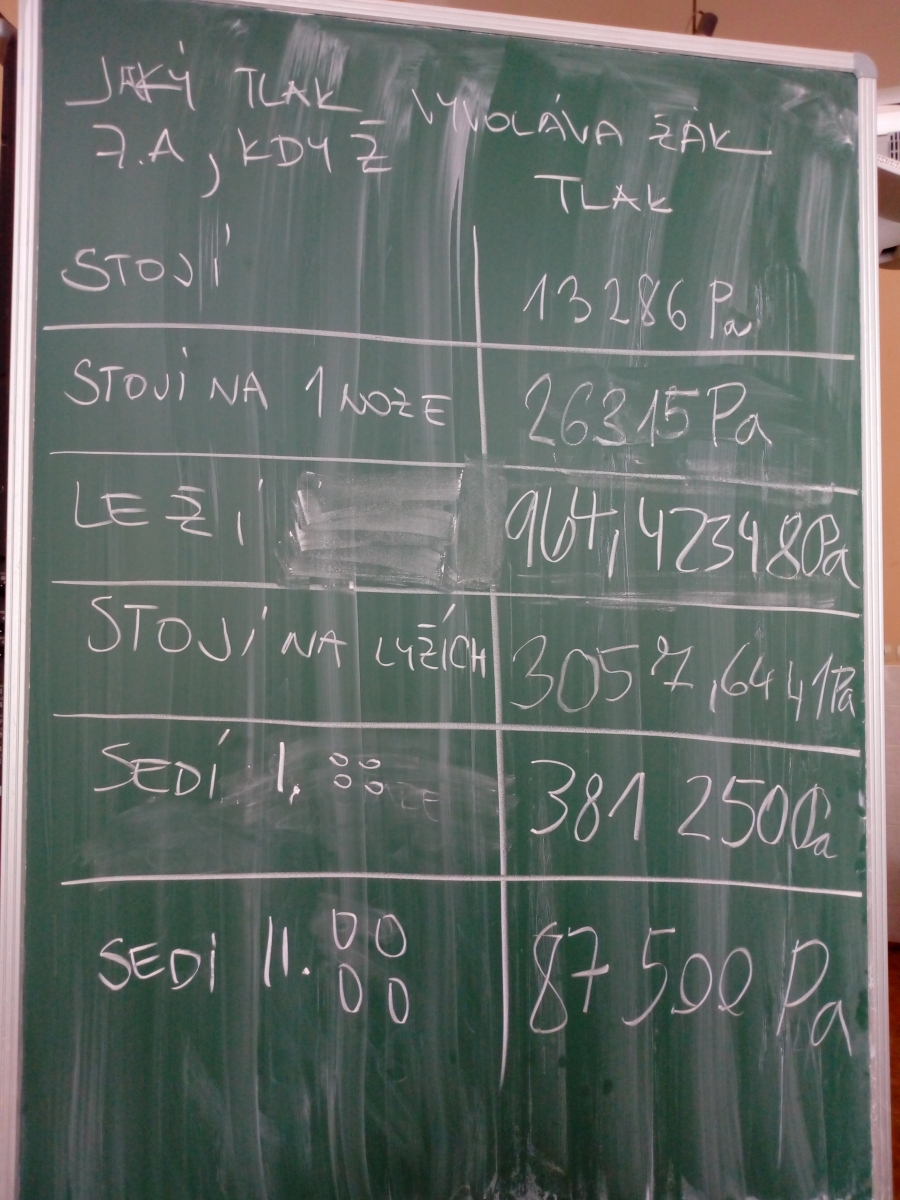 JAKÝ TLAK VYVOLÁVÁ ŽÁK
7.A, KDYŽ
TLAK
STOJÍ 13 286 Pa
STOJÍ NA 1 NOZE 26315 Pa
LEŽÍ 964,423480Pa
STOJÍ NA LYŽÍCH 3057,6441Pa
SEDÍ I. 381 250Pa
SEDÍ II. 87 500 Pa